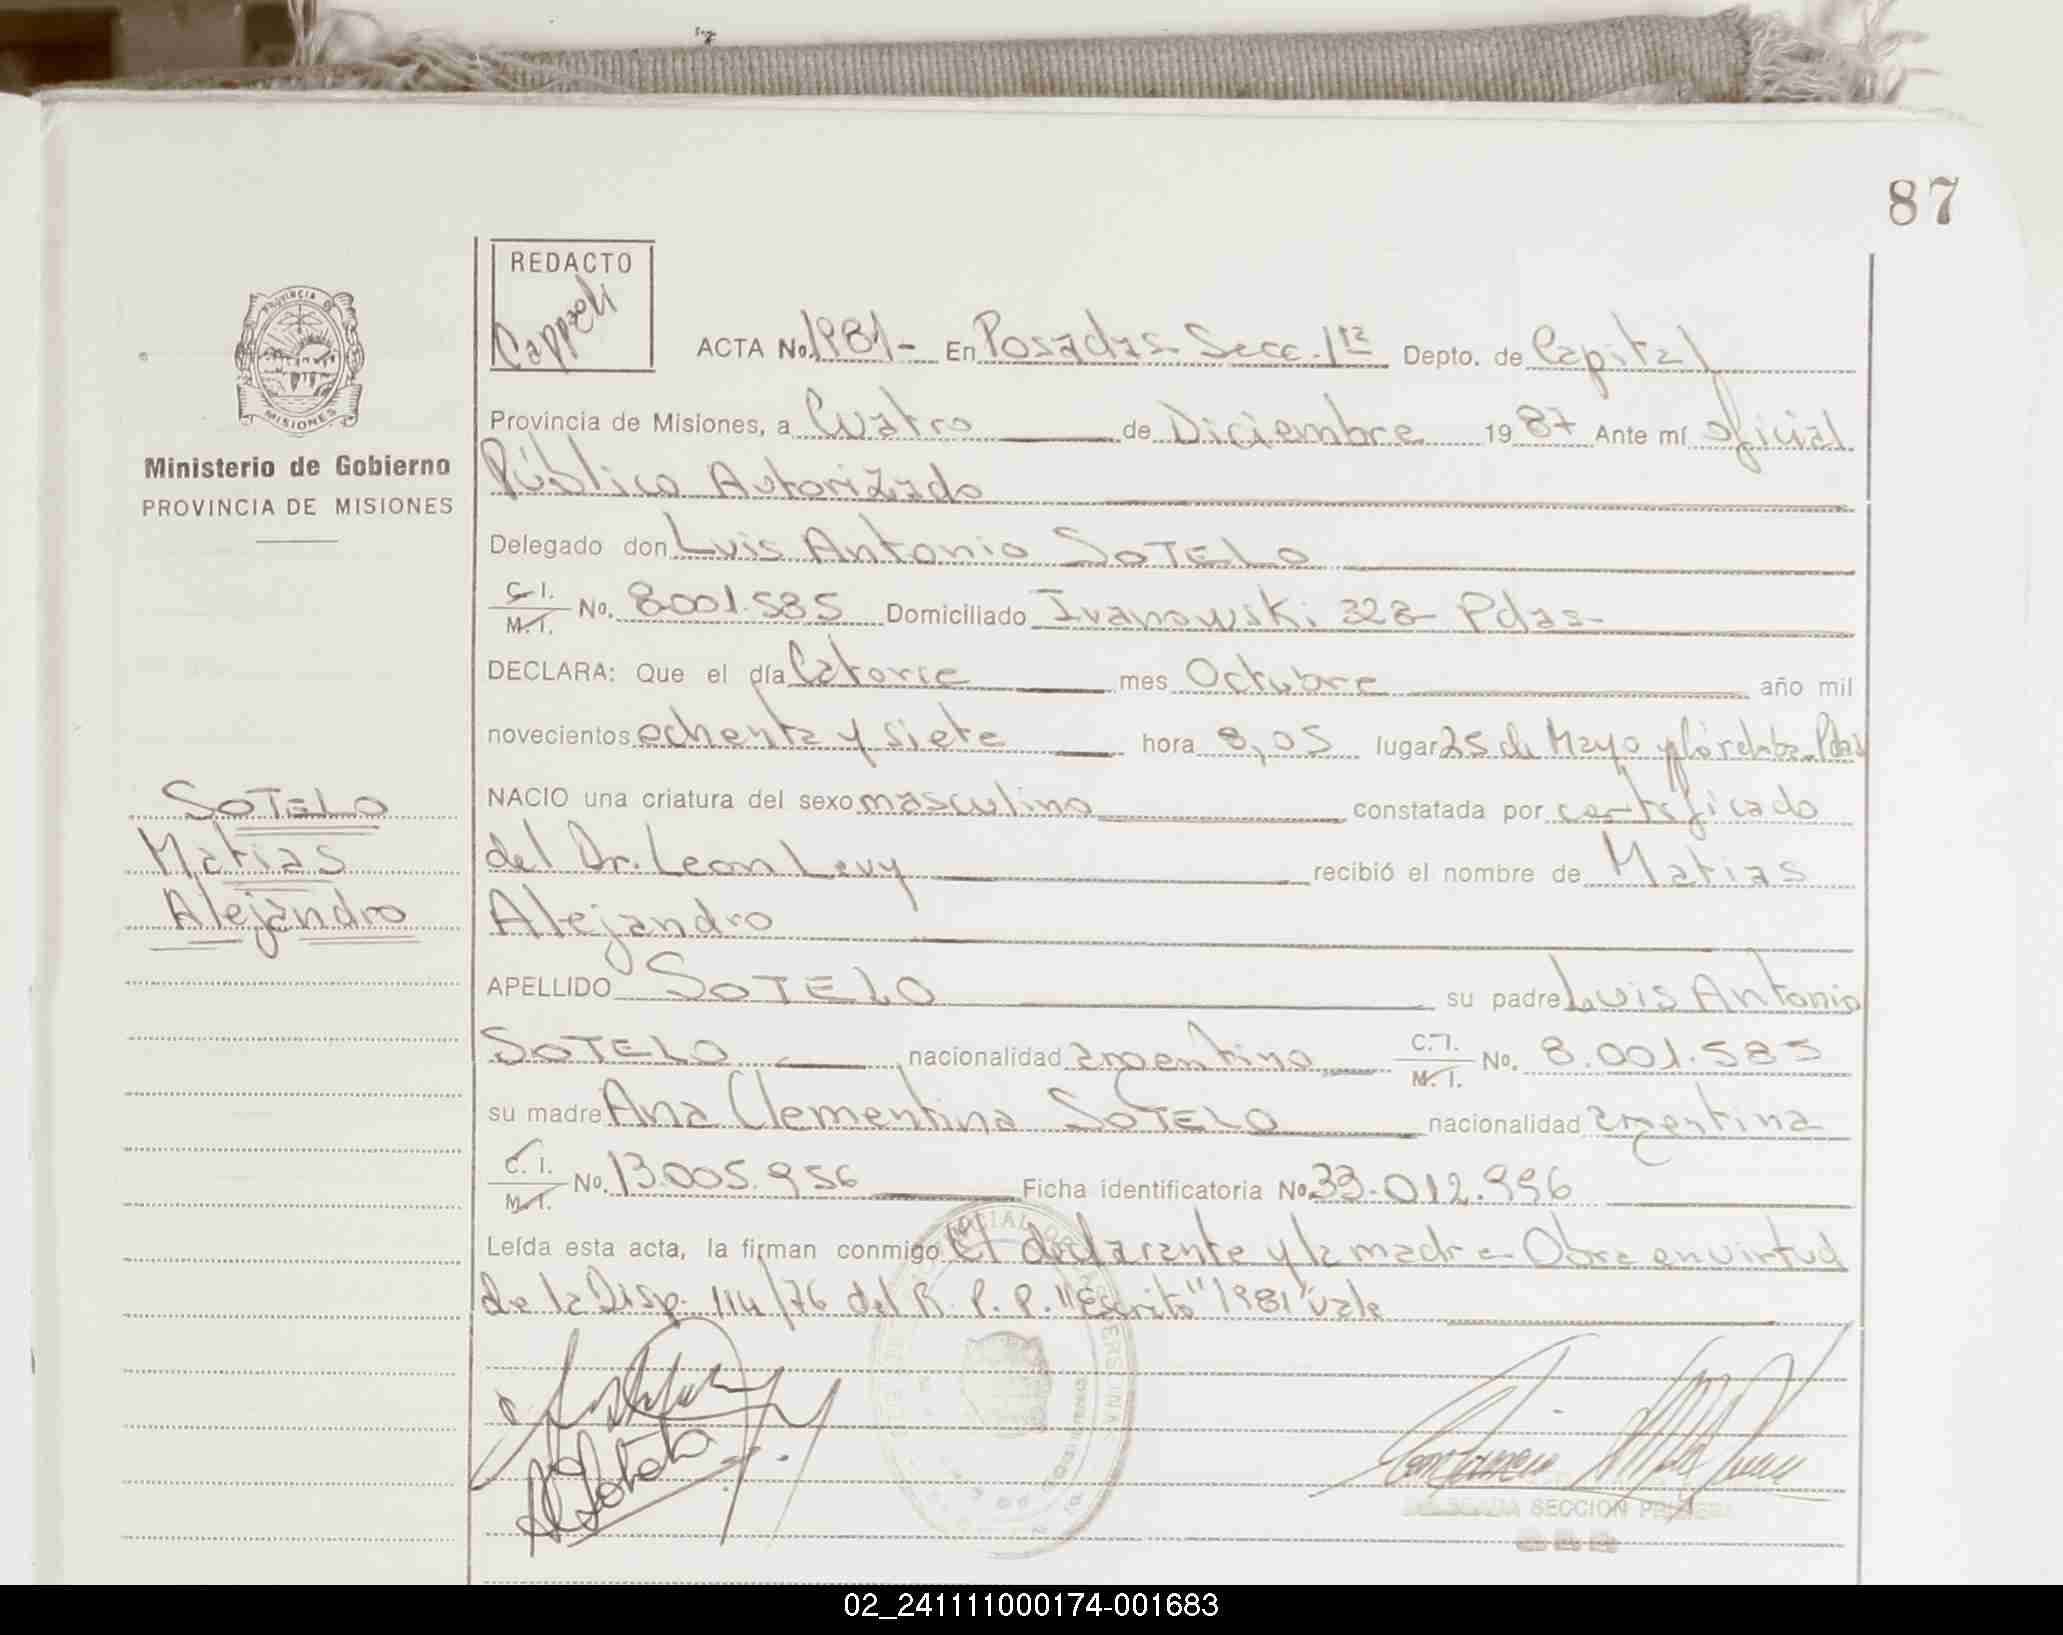 87
REDACTO
Cappeli
ACTA No. 1981- En Posadas Secc. 1ra Depto. de Capital
Provincia de Misiones, a Cuatro de Diciembre 1987 Ante mí oficial
Público Autorizado
Delegado don Luis Antonio SOTELO
C.I. M.I. No. 8001.585 Domiciliado Ivanowski 328 Pdas-
DECLARA: Que el día Catorce mes Octubre año mil
novecientos ochenta y siete hora 8,05 lugar 25 de Mayo y Córdoba Pdas
NACIO una criatura del sexo masculino constatada por certificado
del Dr. Leon Levy recibió el nombre de Matias
Alejandro
APELLIDO SOTELO su padre Luis Antonio
SOTELO nacionalidad argentino C.I. M.I. No. 8.001.585
su madre Ana Clementina SOTELO nacionalidad argentina
C.I. M.I. No. 13.005.956 Ficha identificatoria No 33.012.996
Leída esta acta, la firman conmigo El declarante y la madre- Obra en virtud
de la Disp. 114/76 del R. P. P. "Escrito" "1981" vale
SECCION PRIMERA
PROVINCIA DE
MISIONES
Ministerio de Gobierno
PROVINCIA DE MISIONES
SOTELO
Matias
Alejandro
02_241111000174-001683